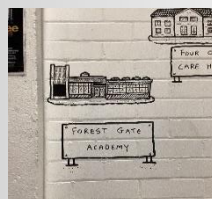 FOUR
CARE H
FOREST GATE
ACADEMY